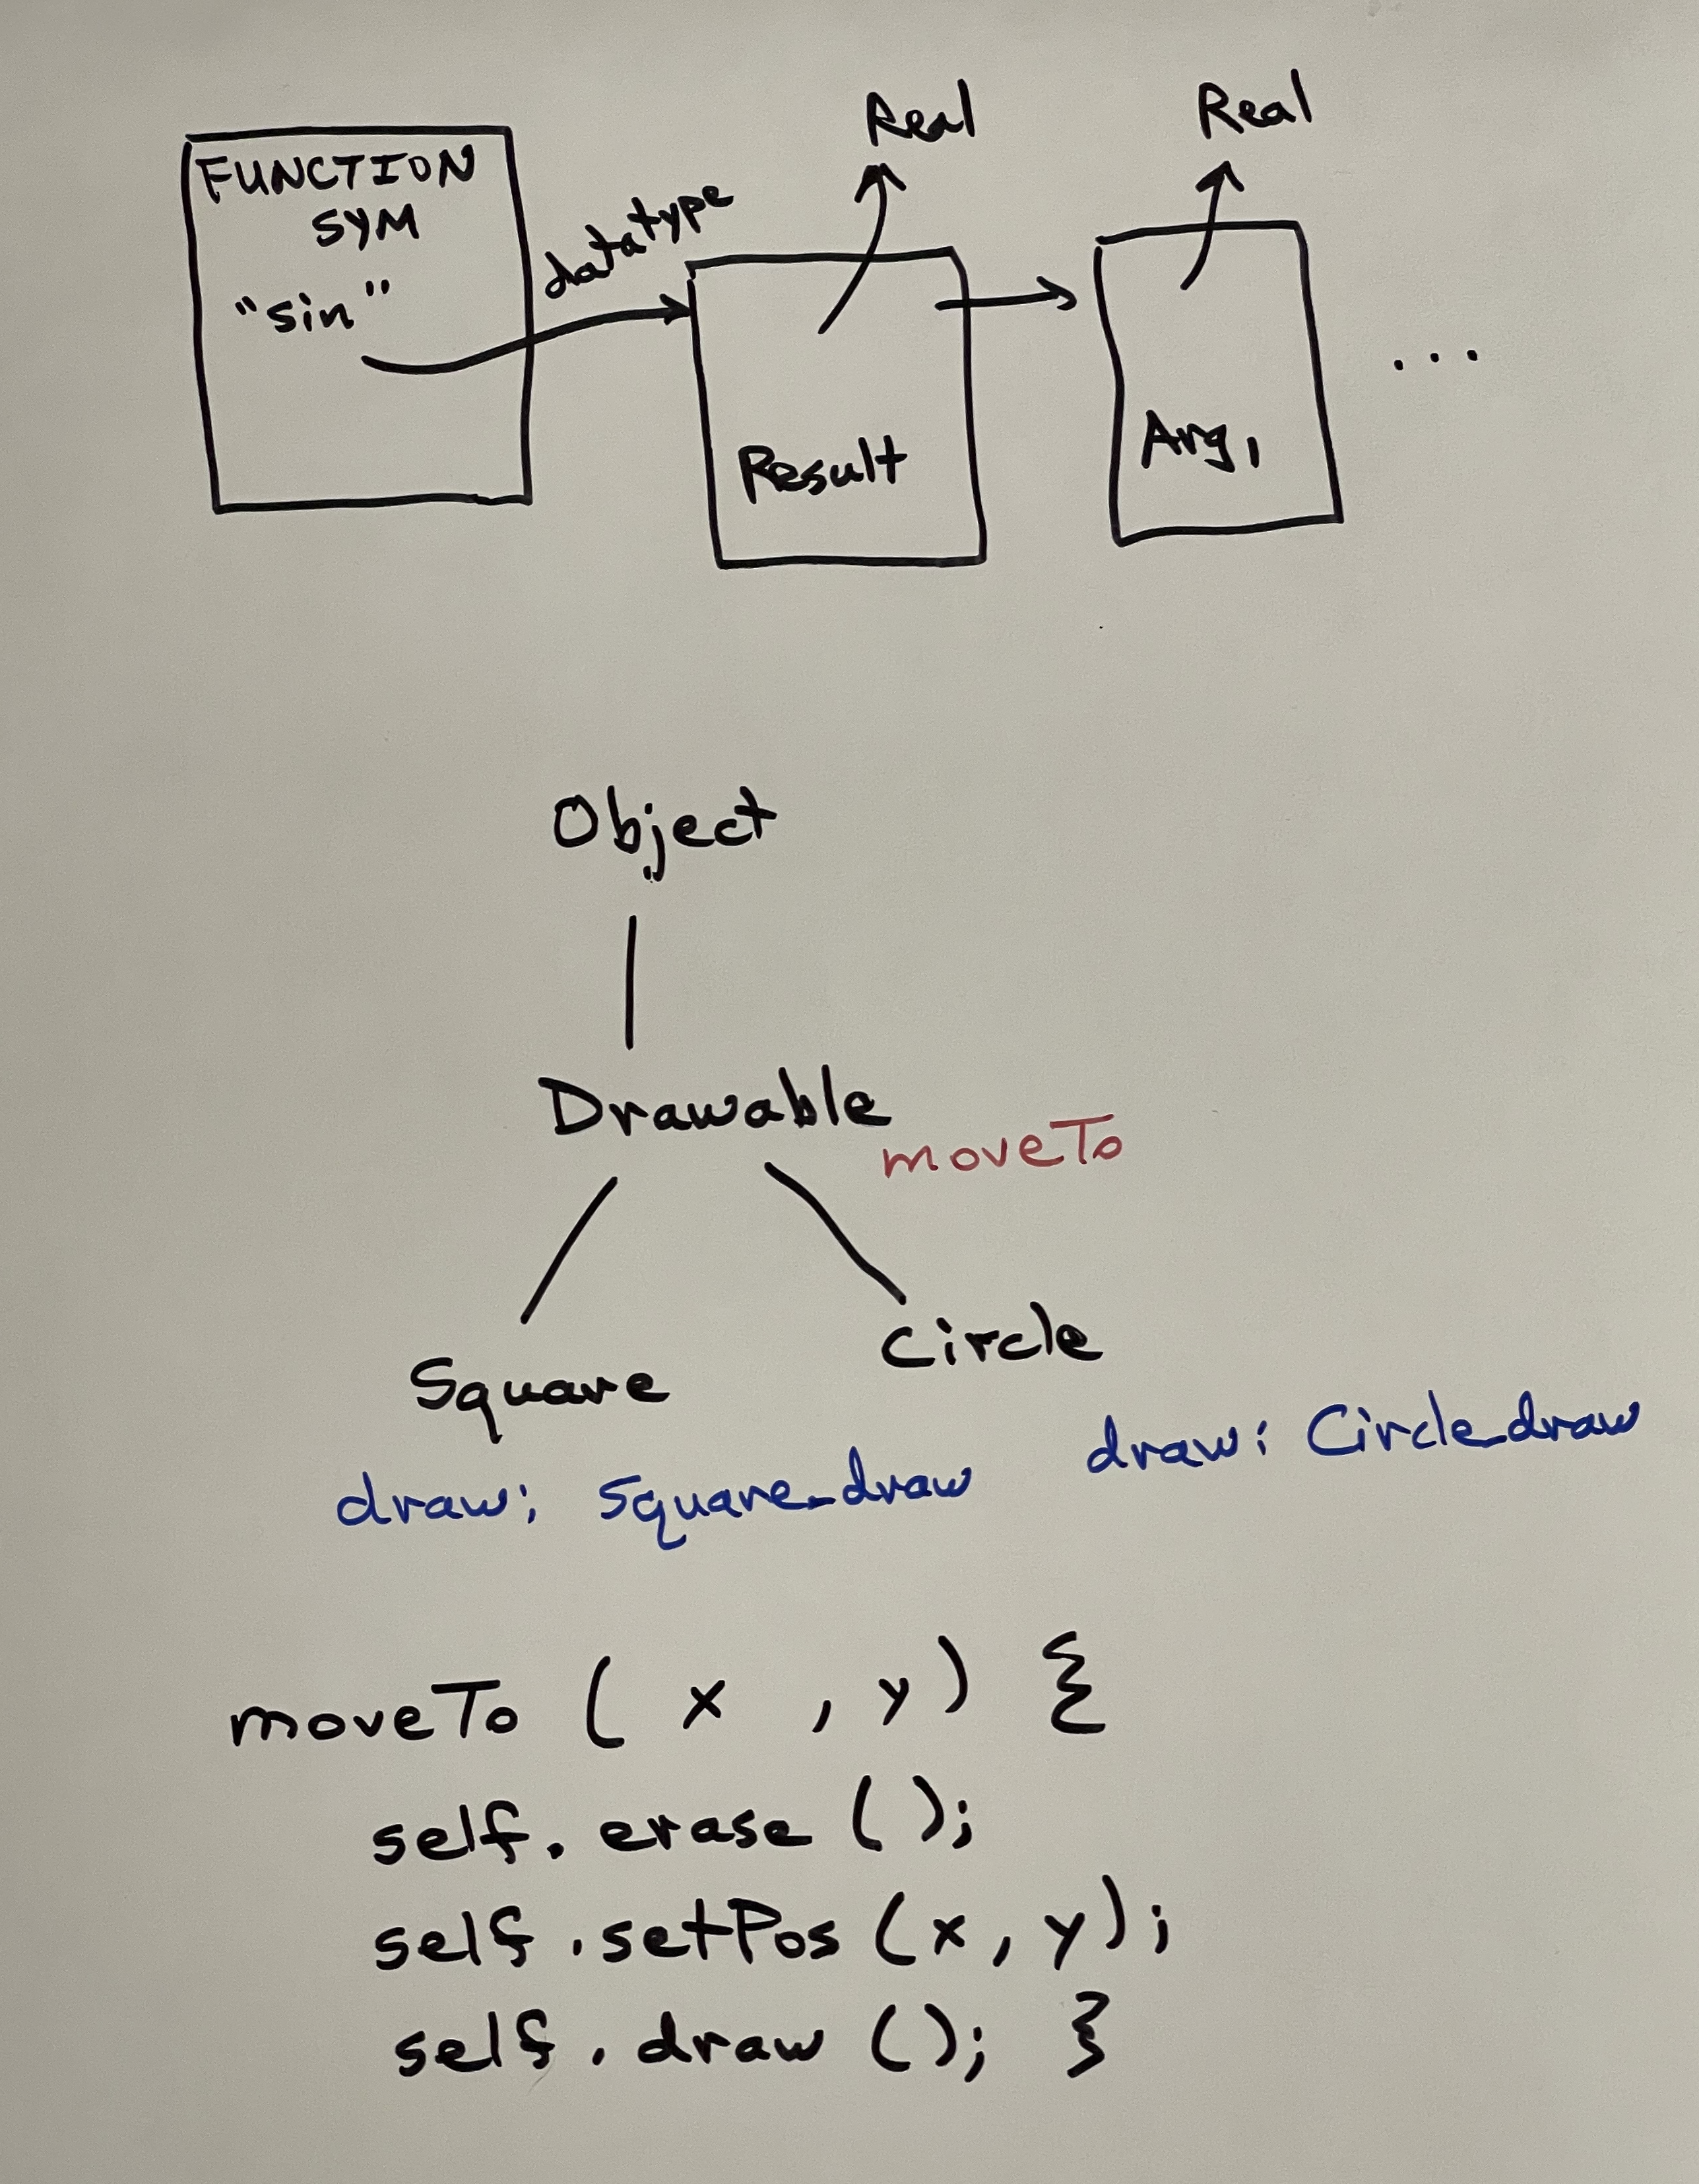 Real
Real
FUNCTION
SYM
"sin"
datatype
Result
Arg1
...
Object
Drawable
moveTo
Square
Circle
draw: Square_draw
draw: Circle_draw
moveTo ( x , y ) {
self. erase ( );
self .setPos (x, y);
self . draw ( ); }